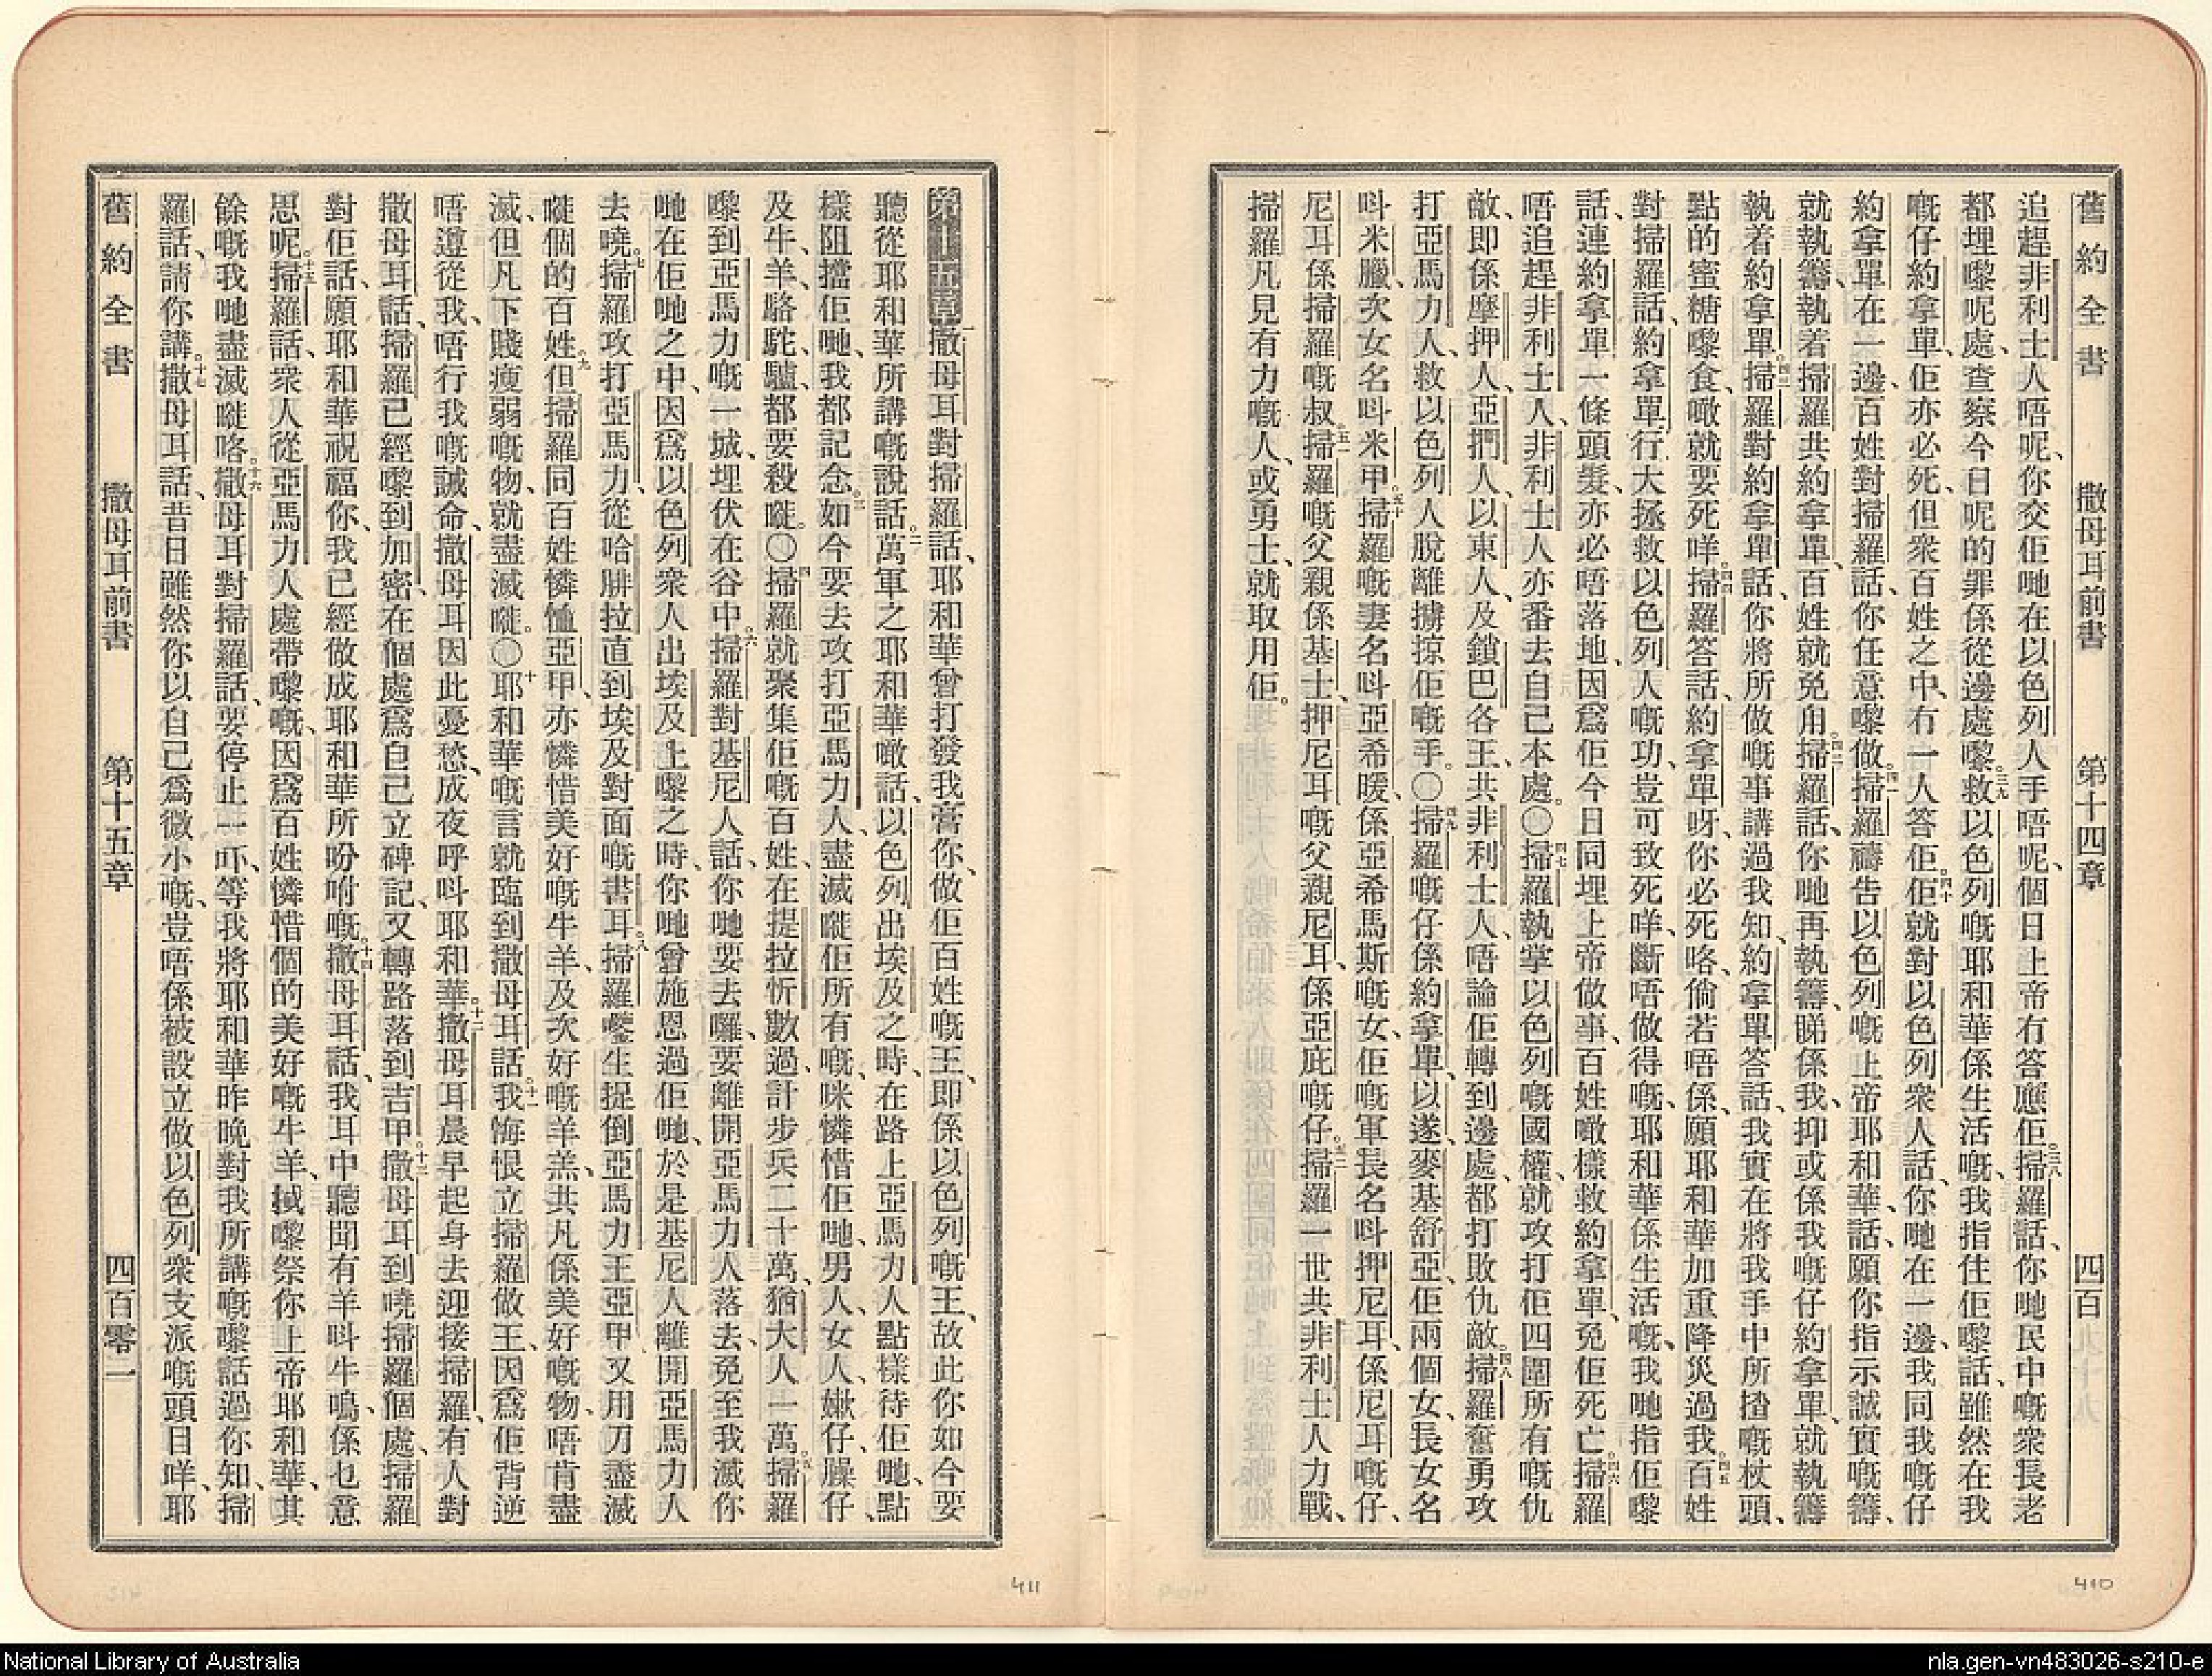 舊約全書 撒母耳前書 第十四章 四百
追趕非利士人唔呢、你交佢哋在以色列人手唔呢、個日上帝有答應佢。三八掃羅話、你哋民中嘅衆長老
都埋嚟呢處、查察今日呢的罪係從邊處嚟。三九救以色列嘅耶和華係生活嘅、我指住佢嚟話、雖然在我
嘅仔約拿單、佢亦必死、但衆百姓之中、有一人答佢。四十佢就對以色列衆人話、你哋在一邊、我同我嘅仔
約拿單在一邊、百姓對掃羅話、你任意嚟做。四一掃羅禱告以色列嘅上帝耶和華、話、願你指示誠實嘅籌、
就執籌、執着掃羅共約拿單、百姓就免用。四二掃羅話、你哋再執籌、睇係我、抑或係我嘅仔約拿單、就執籌
執着約拿單。四三掃羅對約拿單話、你將所做嘅事講過我知、約拿單答話、我實在將我手中所揸嘅杖頭、
點的蜜糖嚟食、噉就要死咩。四四掃羅答話、約拿單呀、你必死咯、倘若唔係、願耶和華加重降災過我。四五百姓
對掃羅話、約拿單行大拯救以色列人嘅功、豈可致死咩、斷唔做得嘅、耶和華係生活嘅、我哋指佢嚟
話、連約拿單一條頭髮、亦必唔落地、因爲佢今日同埋上帝做事、百姓噉樣救約拿單、免佢死亡。四六掃羅
唔追趕非利士人、非利士人亦番去自己本處。〇四七掃羅執掌以色列嘅國權、就攻打佢四圍所有嘅仇
敵、即係摩押人、亞捫人、以東人、及鎖巴各王、共非利士人、唔論佢轉到邊處、都打敗仇敵。四八掃羅奮勇攻
打亞馬力人、救以色列人脫離擄掠佢嘅手。〇四九掃羅嘅仔係約拿單、以遂、麥基舒亞、佢兩個女、長女名
呌米臘、次女名呌米甲。五十掃羅嘅妻名呌亞希暖、係亞希馬斯嘅女、佢嘅軍長名呌押尼耳、係尼耳嘅仔、
尼耳係掃羅嘅叔。五一掃羅嘅父親係基士、押尼耳嘅父親尼耳、係亞庇嘅仔。五二掃羅一世共非利士人力戰、
掃羅凡見有力嘅人、或勇士、就取用佢。
410
第十五章 一撒母耳對掃羅話、耶和華曾打發我膏你、做佢百姓嘅王、即係以色列嘅王、故此你如今要
聽從耶和華所講嘅說話。二萬軍之耶和華噉話、以色列出埃及之時、在路上亞馬力人點樣待佢哋、點
樣阻擋佢哋、我都記念。三如今要去攻打亞馬力人、盡滅嘥佢所有嘅、咪憐惜佢哋、男人、女人、嫰仔、臊仔、
及牛、羊、駱駝、驢、都要殺嘥。〇四掃羅就聚集佢嘅百姓、在提拉忻數過、計步兵二十萬、猶大人一萬。五掃羅
嚟到亞馬力嘅一城、埋伏在谷中。六掃羅對基尼人話、你哋要去囉、要離開亞馬力人落去、免至我滅你
哋在佢哋之中、因爲以色列衆人出埃及上嚟之時、你哋曾施恩過佢哋、於是基尼人離開亞馬力人
去嘵。七掃羅攻打亞馬力、從哈腓拉直到埃及對面嘅書耳。八掃羅嚟生捉倒亞馬力王亞甲、又用刀盡滅
嘥個的百姓。九但掃羅同百姓憐恤亞甲、亦憐惜美好嘅牛羊、及次好嘅羊羔、共凡係美好嘅物、唔肯盡
滅、但凡下賤瘦弱嘅物、就盡滅嘥。〇十耶和華嘅言就臨到撒母耳話、十一我悔恨立掃羅做王、因爲佢背逆
唔遵從我、唔行我嘅誡命、撒母耳因此憂愁、成夜呼呌耶和華。十二撒母耳晨早起身去迎接掃羅、有人對
撒母耳話、掃羅已經嚟到加密、在個處爲自己立碑記、又轉路落到吉甲。十三撒母耳到嘵掃羅個處、掃羅
對佢話、願耶和華祝福你、我已經做成耶和華所吩咐嘅。十四撒母耳話、我耳中聽聞有羊呌牛鳴、係乜意
思呢。十五掃羅話、衆人從亞馬力人處帶嚟嘅、因爲百姓憐惜個的美好嘅牛羊、㨢嚟祭你上帝耶和華、其
餘嘅我哋盡滅嘥咯。十六撒母耳對掃羅話、要停止一吓、等我將耶和華昨晚對我所講嘅嚟話過你知、掃
羅話、請你講。十七撒母耳話、昔日雖然你以自己爲微小嘅、豈唔係被設立做以色列衆支派嘅頭目咩、耶
舊約全書 撒母耳前書 第十五章 四百零二
411
National Library of Australia
nla.gen-vn483026-s210-e